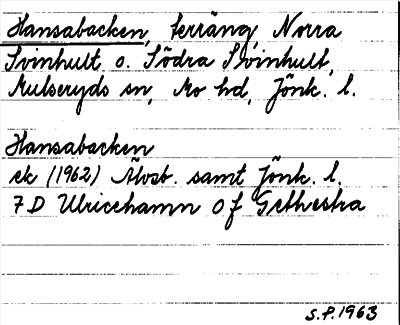 Hansabacken, terräng Norra
Svinhult o. Södra Svinhult,
Mulseryds sn, Mo hd, Jönk. l.
Hansabacken
ek (1962) Älvsb. samt Jönk. l.
7D Ulricehamn 0f Grethestra
S.P. 1963